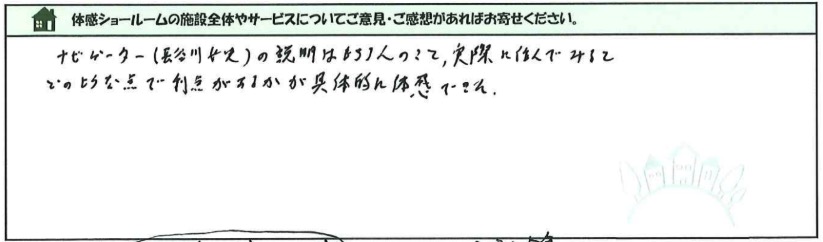 体感ショールームの施設全体やサービスについてご意見・ご感想があればお寄せください。
ナビゲーター(長谷川女史)の説明はもちろんのこと、実際に住んでみると
どのような点で利点があるかが具体的に体感できた.